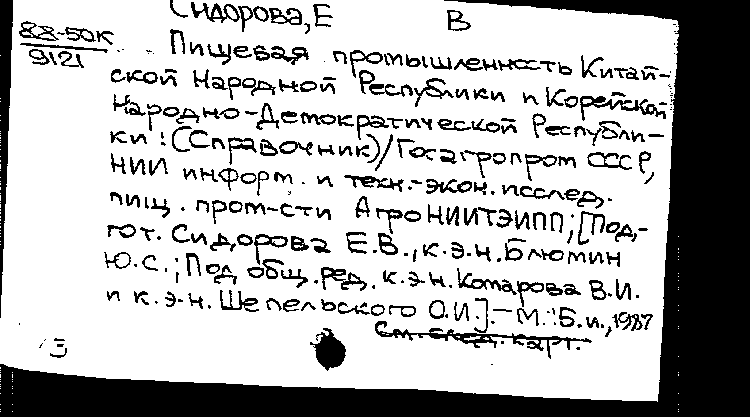 Сидорова, Е В
88-50К
9121
Пищевая промышленность Китай-
ской Народной Республики и Корейской
Народно-Демократической Республи-
ки : (Справочник)/Госагропром СССР,
НИИ информ. и техн.-экон. исслед.
пищ. пром-сти АгроНИИТЭИПП; [Под-
гот. Сидорова Е.В., к.э.н. Блюмин
Ю.С.; Под общ. ред. к.э.н. Комарова В.И.
и к.э.н. Шепельского О.И.].- М. : Б.и., 1987
См. след. карт.
3